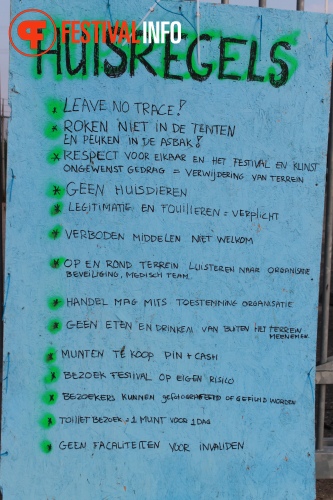 FESTIVALINFO
HUISREGELS
LEAVE NO TRACE!
ROKEN NIET IN DE TENTEN
EN PEUKEN IN DE ASBAK!
RESPECT VOOR ELKAAR EN HET FESTIVAL EN KUNST
ONGEWENST GEDRAG = VERWIJDERING VAN TERREIN
GEEN HUISDIEREN
LEGITIMATIE EN FOUILLEREN = VERPLICHT
VERBODEN MIDDELEN NIET WELKOM
OP EN ROND TERREIN LUISTEREN NAAR ORGANISATIE
BEVEILIGING, MEDISCH TEAM
HANDEL MAG MITS TOESTENNING ORGANISATIE
GEEN ETEN EN DRINKEN VAN BUITEN HET TERREIN
MEENEMEN
MUNTEN TE KOOP PIN + CASH
BEZOEK FESTIVAL OP EIGEN RISICO
BEZOEKERS KUNNEN GEFOTOGRAFEERD OF GEFILMD WORDEN
TOILET BEZOEK = 1 MUNT VOOR 1 DAG
GEEN FACALITEITEN VOOR INVALIDEN